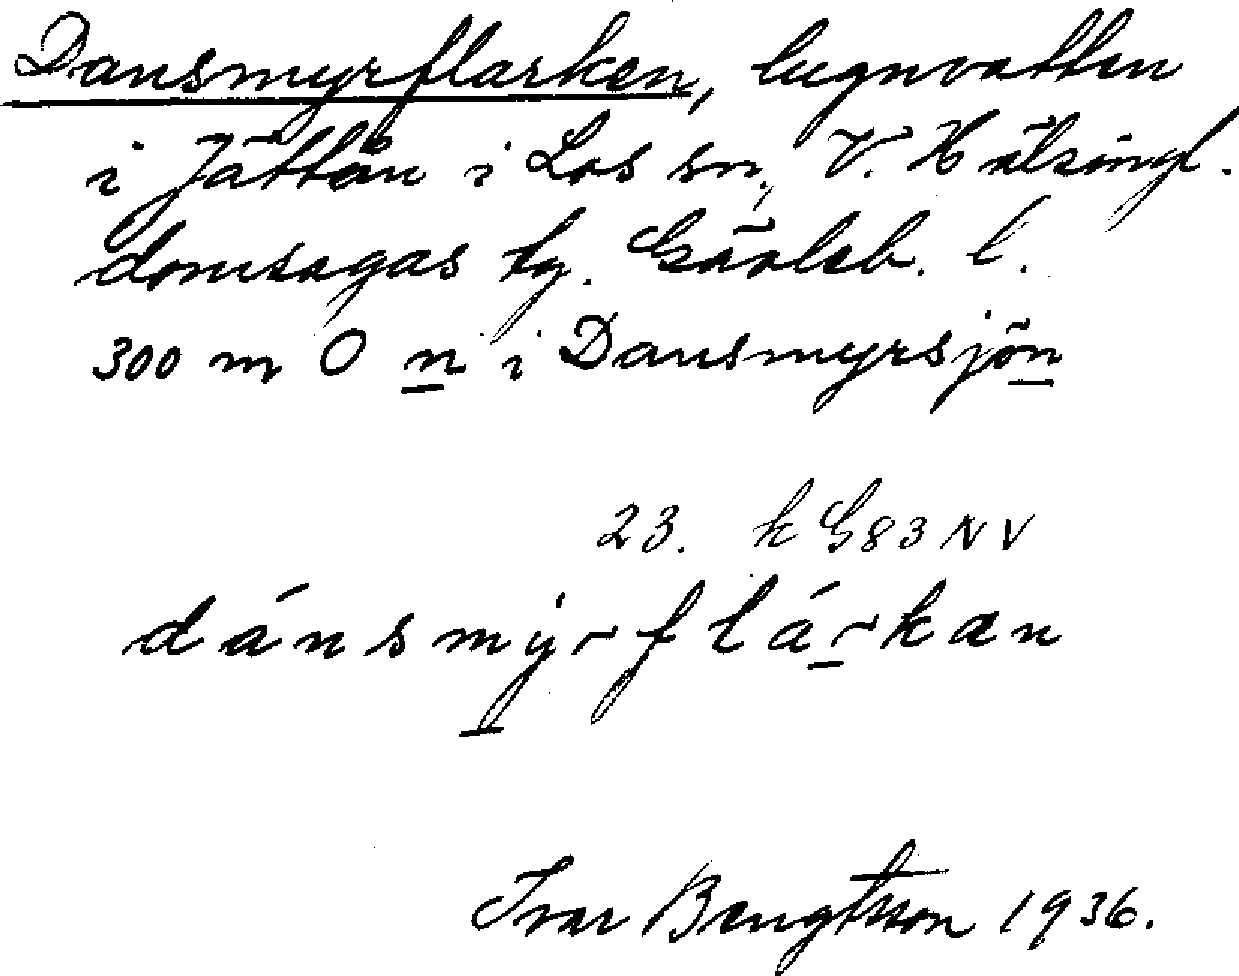 Dansmyrflarken, lugnvatten
i Jättån i Los sn, V. Hälsingl.
domsagas tg. Gävleb. l.
300 m O n i Dansmyrsjön
23. k G83NV
dánsmýrflárkan
Ivar Bengtsson 1936.